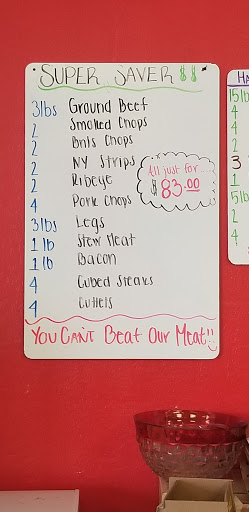 SUPER SAVER $$
3lbs Ground Beef
2 Smoked Chops
2 Bnls Chops
2 NY Strips
2 Ribeye
4 Pork Chops
3lbs Legs
1 lb Stew Meat
1 lb Bacon
4 Cubed Steaks
4 Cutlets
All just for...
$83.00
YOU CAN'T BEAT OUR MEAT!!
HA
15lb
4
4
2
3
1
5lb
2
4